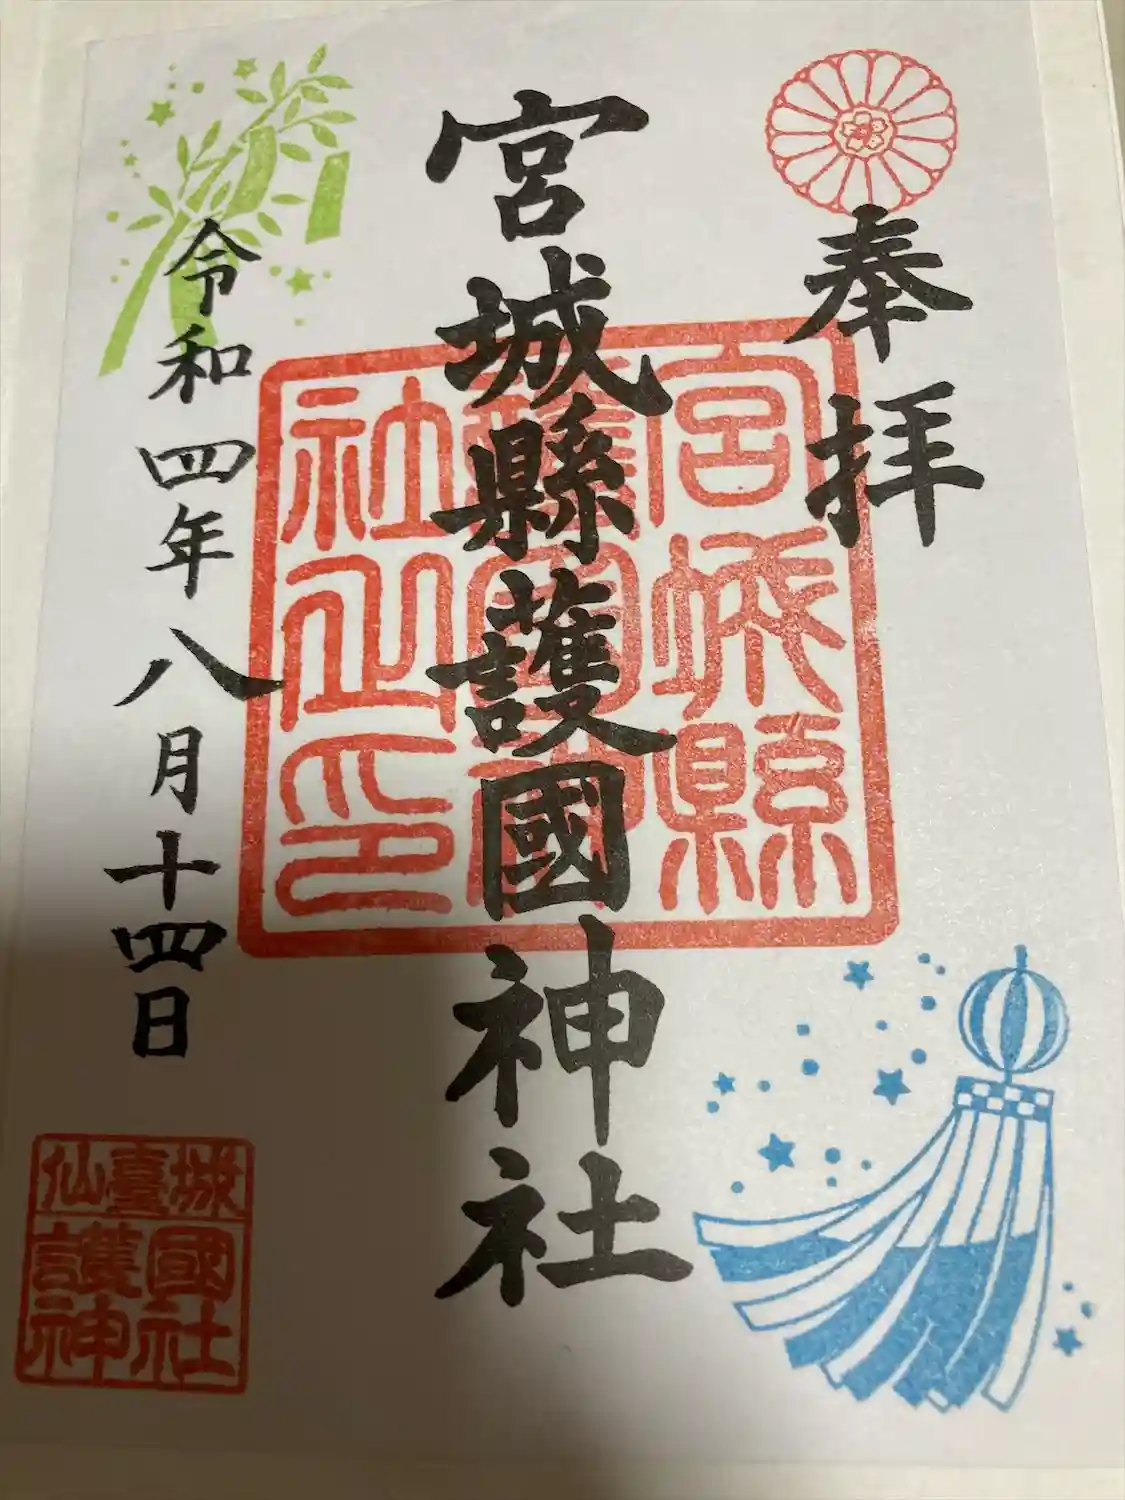 奉拝
宮城縣護國神社
宮城縣
護國神
社之印
令和四年八月十四日
仙臺城
護國
神社